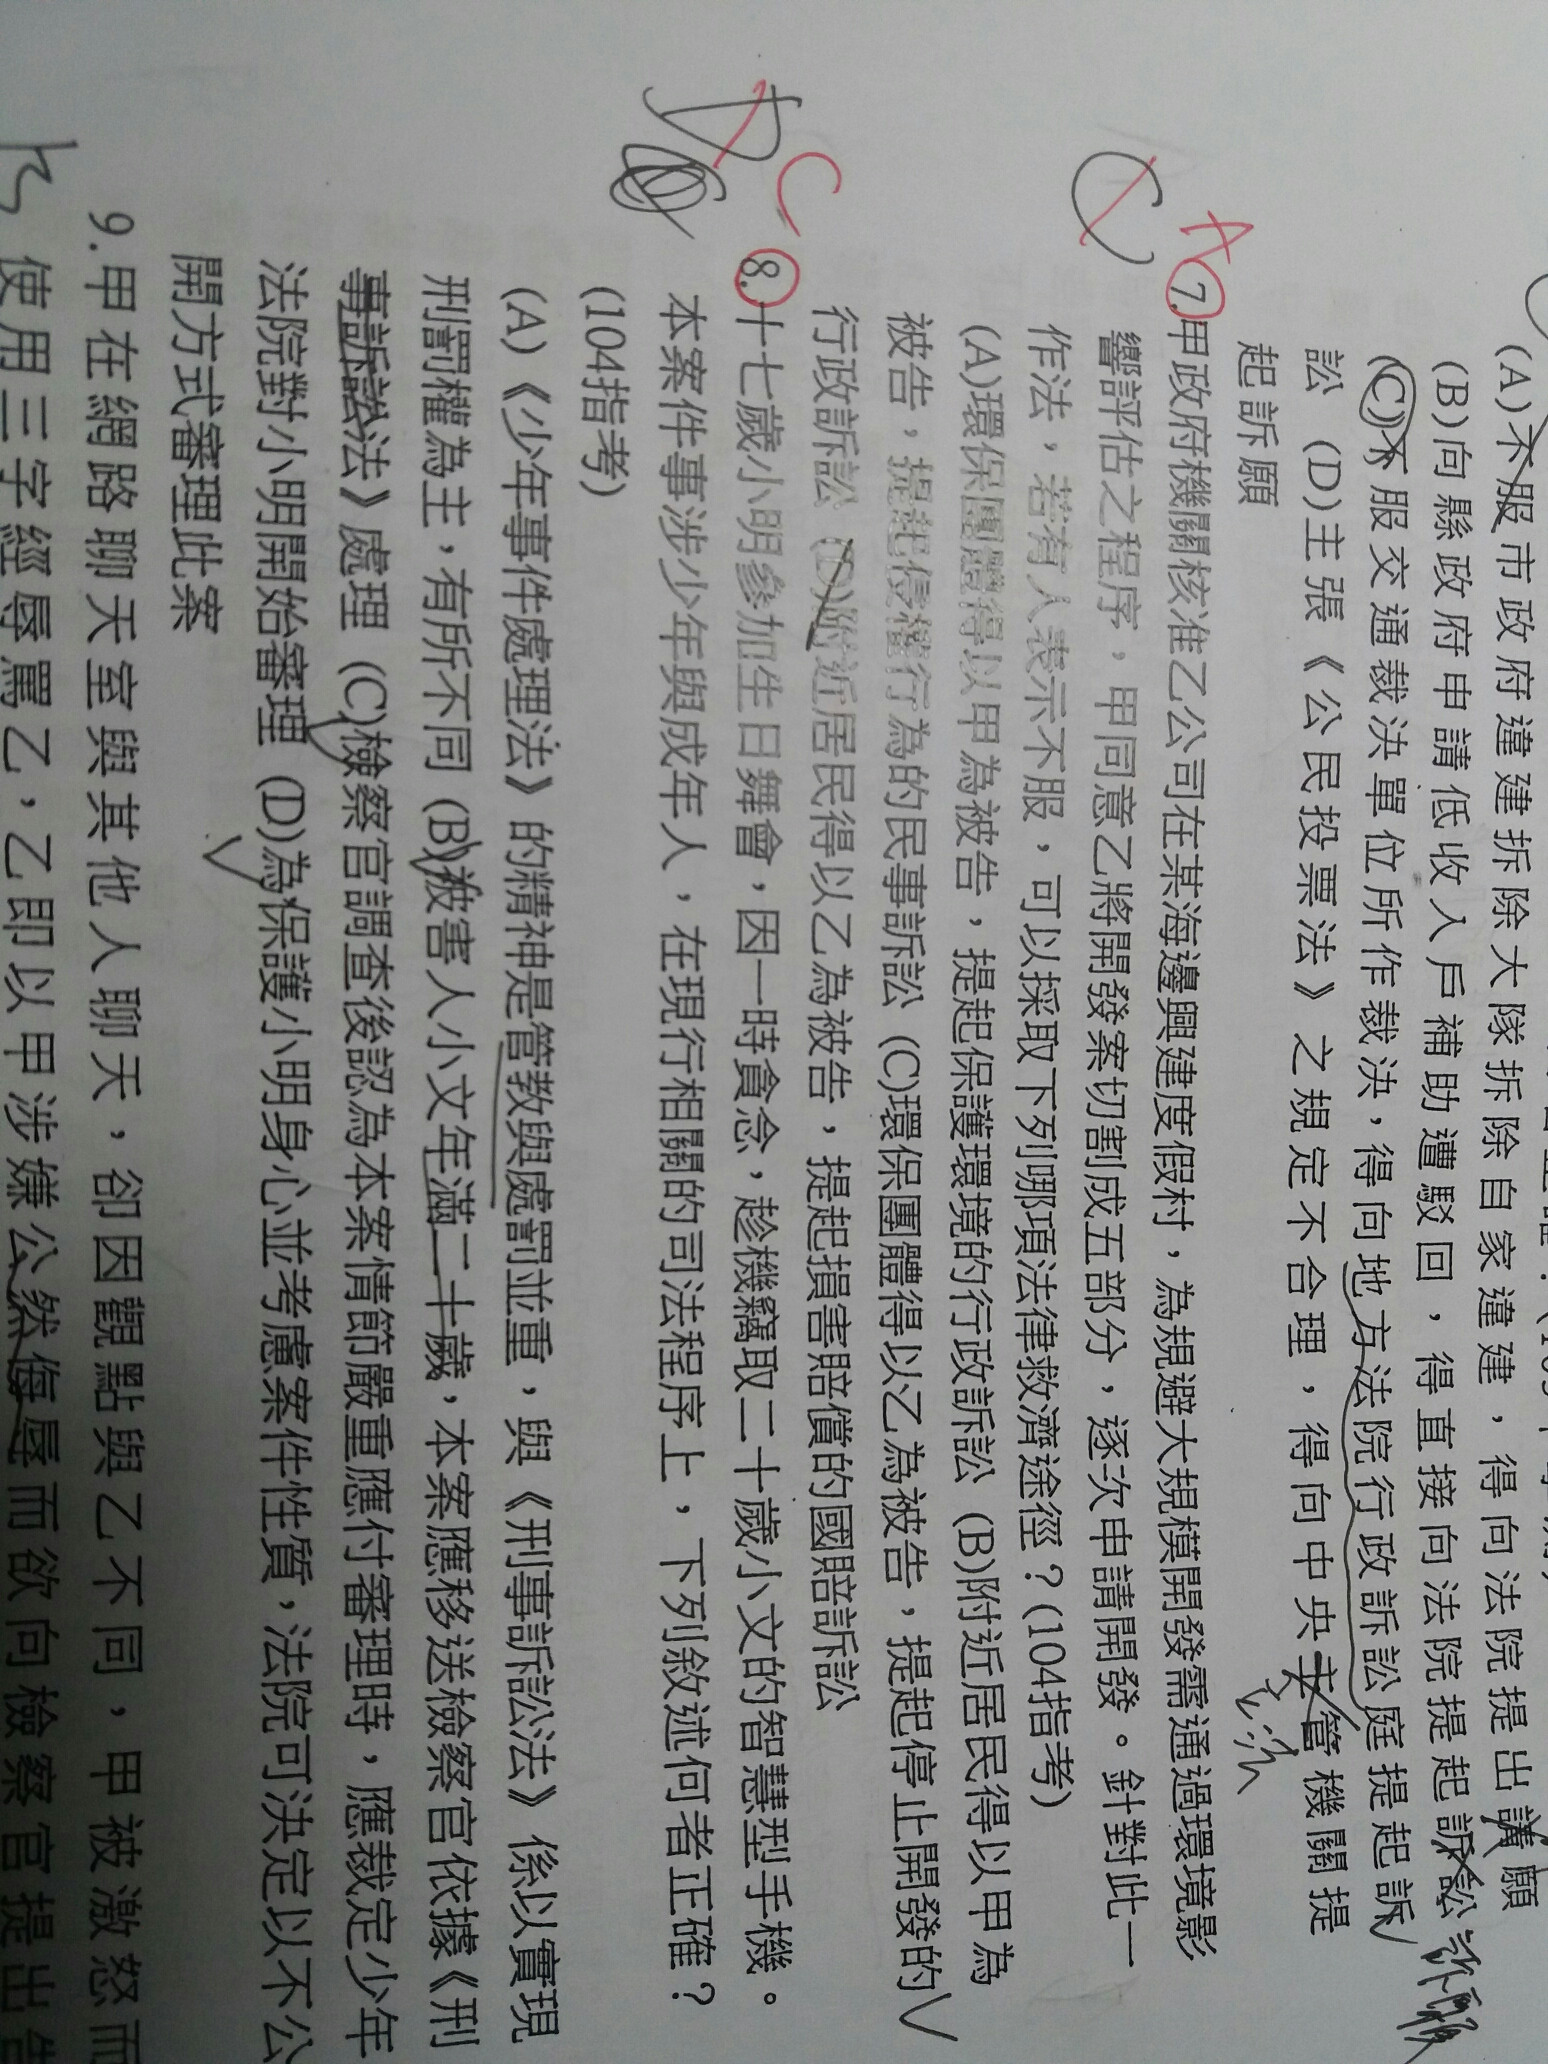 (A)不服市政府違建拆除大隊拆除自家違建，得向法院提出請願
(B)向縣政府申請低收入戶補助遭駁回，得直接向法院提起訴訟 訴願
(C)不服交通裁決單位所作裁決，得向地方法院行政訴訟庭提起訴
訟 (D)主張《公民投票法》之規定不合理，得向中央主管機關提
起訴願
A
7.甲政府機關核准乙公司在某海邊興建度假村，為規避大規模開發需通過環境影
C
響評估之程序，甲同意乙將開發案切割成五部分，逐次申請開發。針對此一
作法，若有人表示不服，可以採取下列哪項法律救濟途徑？(104指考)
(A)環保團體得以甲為被告，提起保護環境的行政訴訟 (B)附近居民得以甲為
被告，提起侵權行為的民事訴訟 (C)環保團體得以乙為被告，提起停止開發的
行政訴訟 (D)附近居民得以乙為被告，提起損害賠償的國賠訴訟
C
8.十七歲小明參加生日舞會，因一時貪念，趁機竊取二十歲小文的智慧型手機。
D
本案件事涉少年與成年人，在現行相關的司法程序上，下列敘述何者正確？
(104指考)
(A)《少年事件處理法》的精神是管教與處罰並重，與《刑事訴訟法》係以實現
刑罰權為主，有所不同 (B)被害人小文年滿二十歲，本案應移送檢察官依據《刑
事訴訟法》處理 (C)檢察官調查後認為本案情節嚴重應付審理時，應裁定少年
法院對小明開始審理 (D)為保護小明身心並考慮案件性質，法院可決定以不公
開方式審理此案
9.甲在網路聊天室與其他人聊天，卻因觀點與乙不同，甲被激怒而
使用三字經辱罵乙，乙即以甲涉嫌公然侮辱而欲向檢察官提出告